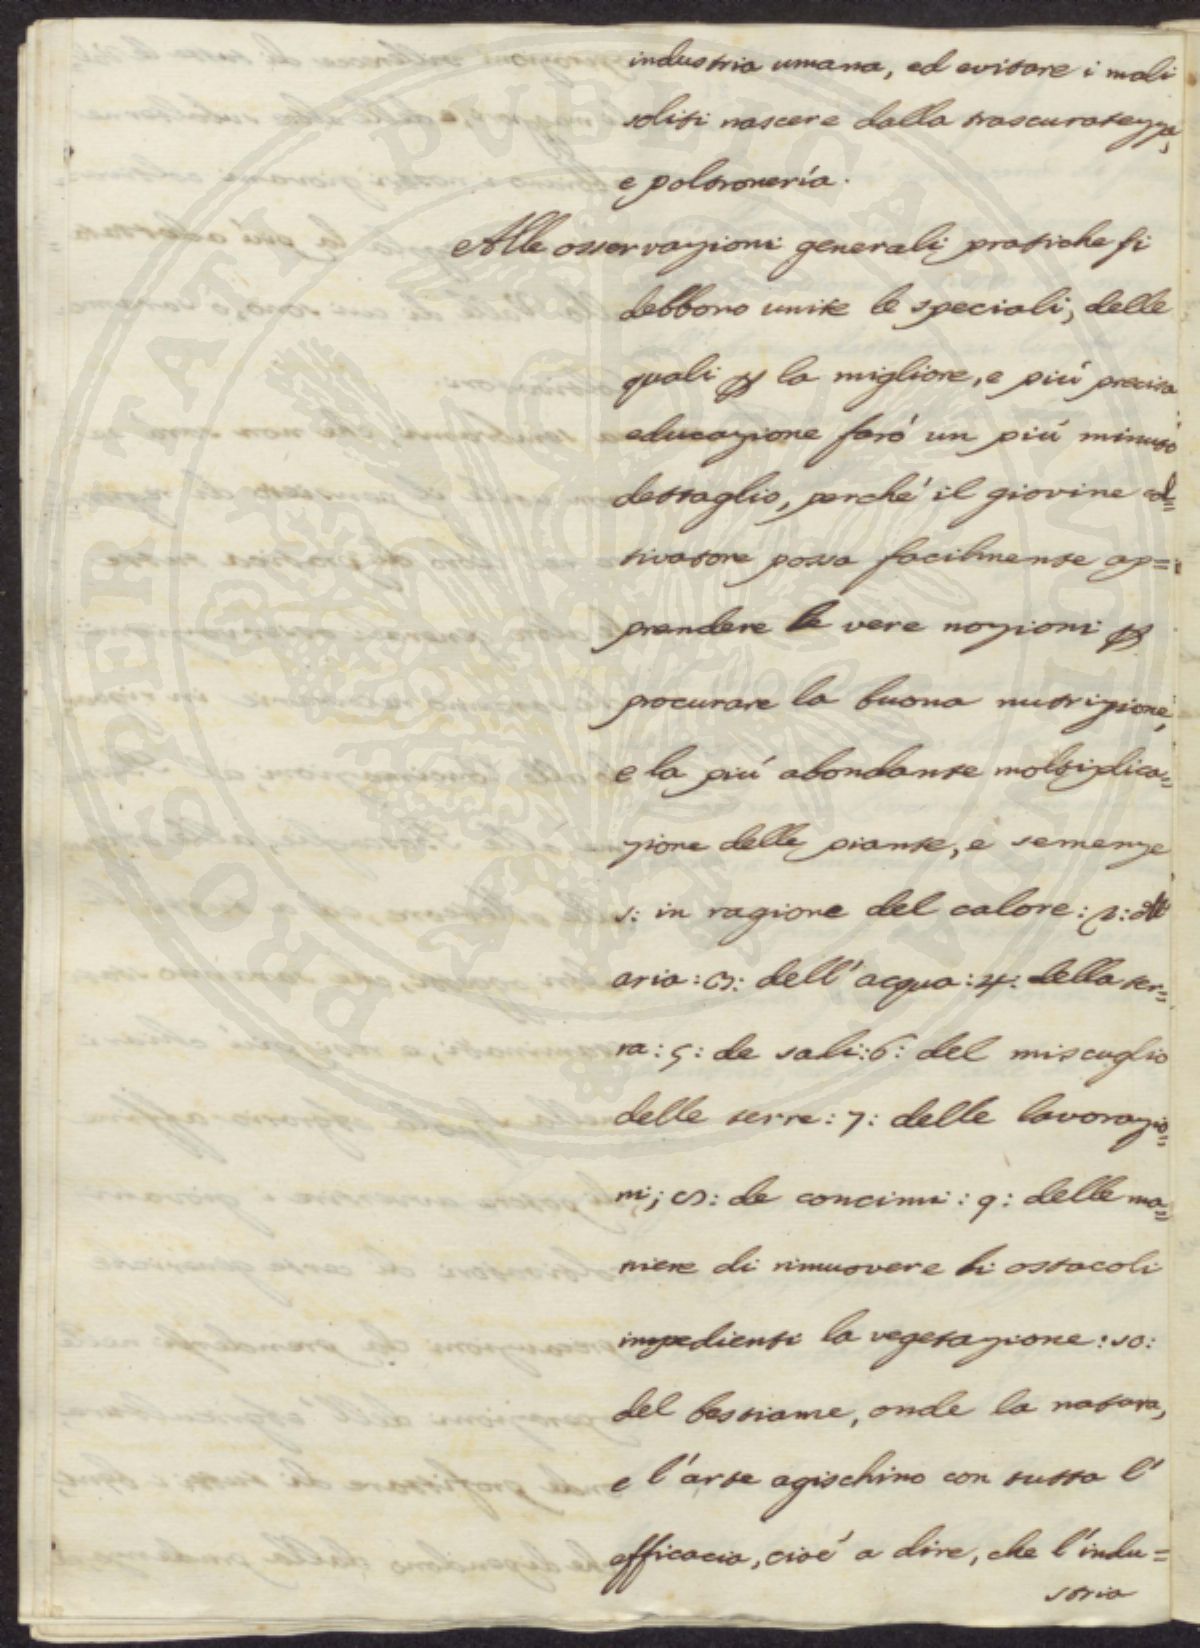 industria umana, ed evitare i mali
soliti nascere dalla trascuratezza,
e poltronería.
Alle osservazioni generali pratiche si
debbono unire le speciali, delle
quali ꝑ la migliore, e piú precisa
educazione faró un piú minuto
dettaglio, perché il giovine col=
tivatore possa facilmente ap=
prendere le vere nozioni ꝑ
procurare la buona nutrizione,
e la piú abondante moltiplica=
zione delle piante, e semenze
1: in ragione del calore: 2: dell'
aria: 3: dell'acqua: 4: della ter=
ra: 5: de sali: 6: del miscuglio
delle terre: 7: delle lavorazio=
ni; 8: de concimi: 9: delle ma=
niere di rimuovere li ostacoli
impedienti la vegetazione: 10:
del bestiame, onde la natura,
e l'arte agischino con tutta l'
efficacia, cioé a dire, che l'indu=
stria
PROSPERITATI PUBLICAE AUGENDAE